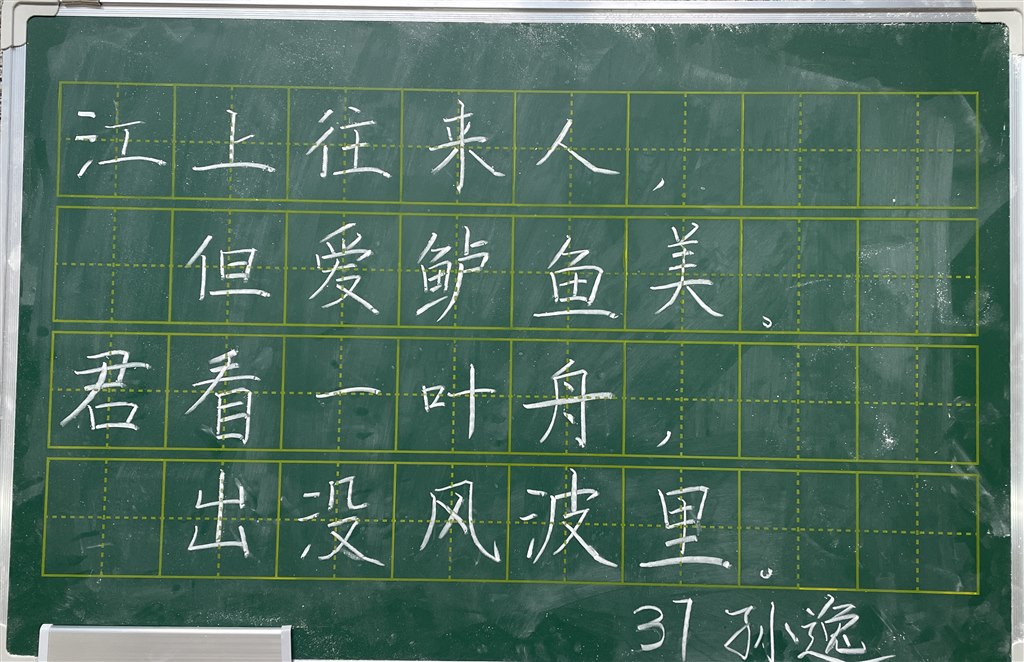 江上往来人，
但爱鲈鱼美。
君看一叶舟，
出没风波里。
37 孙逸